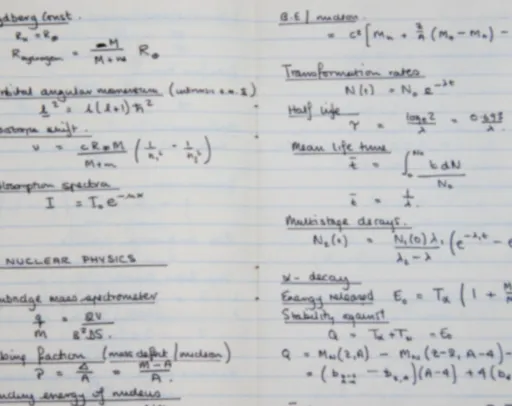 ydberg Const.
R∞ = R∞
R hydrogen = M / M+me R∞
orbital angular momentum (intrinsic e.g. s)
l² = l(l+1)ħ²
isotope shift.
ν = c R∞ M / M+m (1/n₁² - 1/n₂²)
absorption spectra
I = I₀ e
NUCLEAR PHYSICS
mbridge mass spectrometer
q/M =
ding fraction (mass defect/nucleon)
P = Δ/A = M-A/A.
nding energy of nucleus
B.E / nucleon
= c² [Mn + Z/A (MH - Mn) -
Transformation rates
N(t) = N₀ e^-λt
Half life
τ = loge2/λ = 0.693/λ.
Mean life time
t̄ = ∫₀^N₀ t dN / N₀
t̄ = 1/λ.
Multistage decays.
N₂(t) = N₁(0) λ₁ / λ₂ - λ₁ (e^-λ₁t - e
α - decay
Energy released E₀ = Tα (1 +
Stability against
Q = Tα + TN = E₀
Q = MN(Z,A) - MN(Z-2, A-4) -
= (b - b Z,A)(A-4) + 4(b